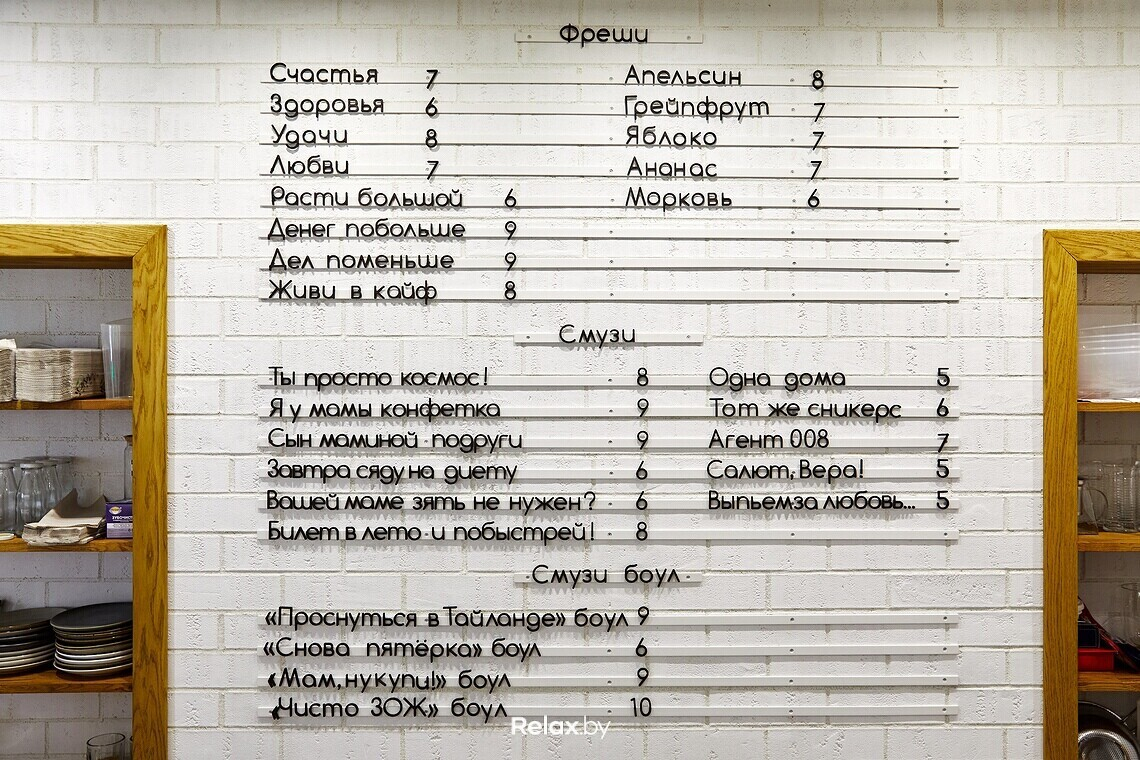 Фреши
Счастья 7
Здоровья 6
Удачи 8
Любви 7
Расти большой 6
Денег побольше 9
Дел поменьше 9
Живи в кайф 8
Апельсин 8
Грейпфрут 7
Яблоко 7
Ананас 7
Морковь 6
Смузи
Ты просто космос! 8
Я у мамы конфетка 9
Сын маминой подруги 9
Завтра сяду на диету 6
Вашей маме зять не нужен? 6
Билет в лето и побыстрей! 8
Одна дома 5
Тот же сникерс 6
Агент 008 7
Салют, Вера! 5
Выпьем за любовь... 5
Смузи боул
«Проснуться в Тайланде» боул 9
«Снова пятёрка» боул 6
«Мам, ну купи!» боул 9
«Чисто ЗОЖ» боул 10
Relax.by